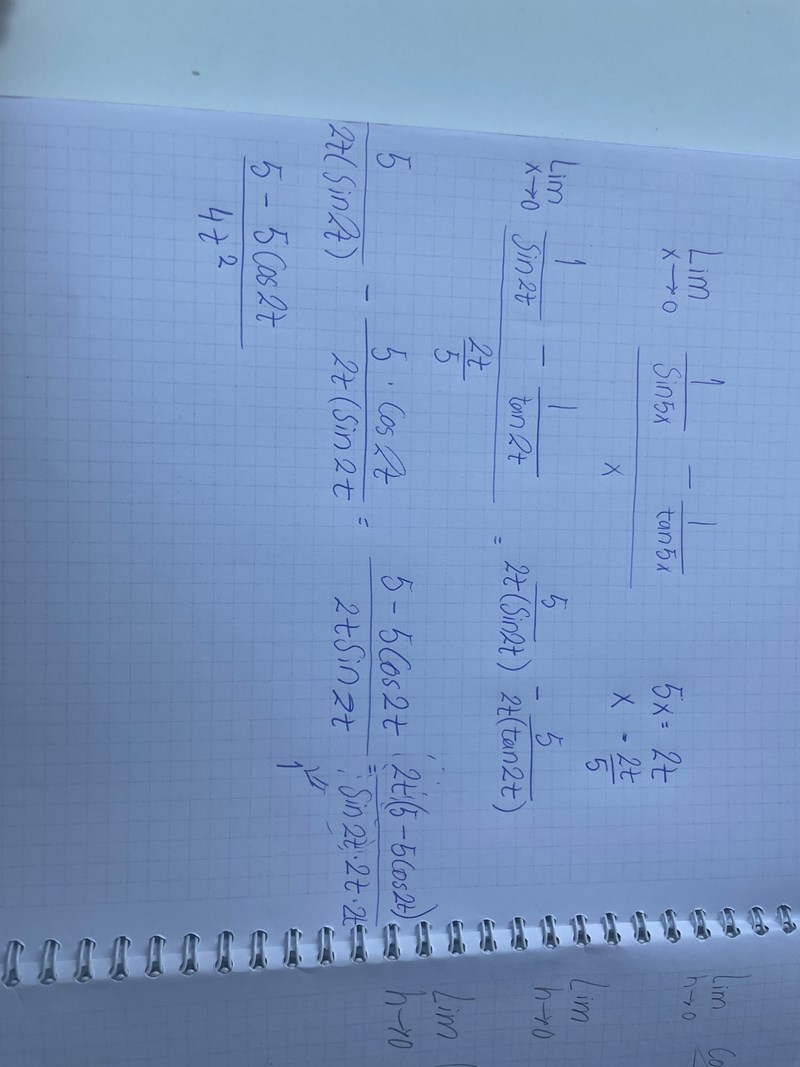 Lim x→0 (1/Sin5x − 1/tan5x)/x 5x = 2t
x = 2t/5
Lim x→0 (1/Sin2t − 1/tan2t)/(2t/5) = 5/(2t(Sin2t)) − 5/(2t(tan2t))
5/(2t(Sin2t)) − (5 · Cos2t)/(2t(Sin2t) = (5 − 5Cos2t)/(2tSin2t) = (2t(5 − 5Cos2t))/(Sin2t · 2t · 2t)
1
(5 − 5Cos2t)/(4t²)
Lim h→0 Co
Lim h→0
Lim h→0 (